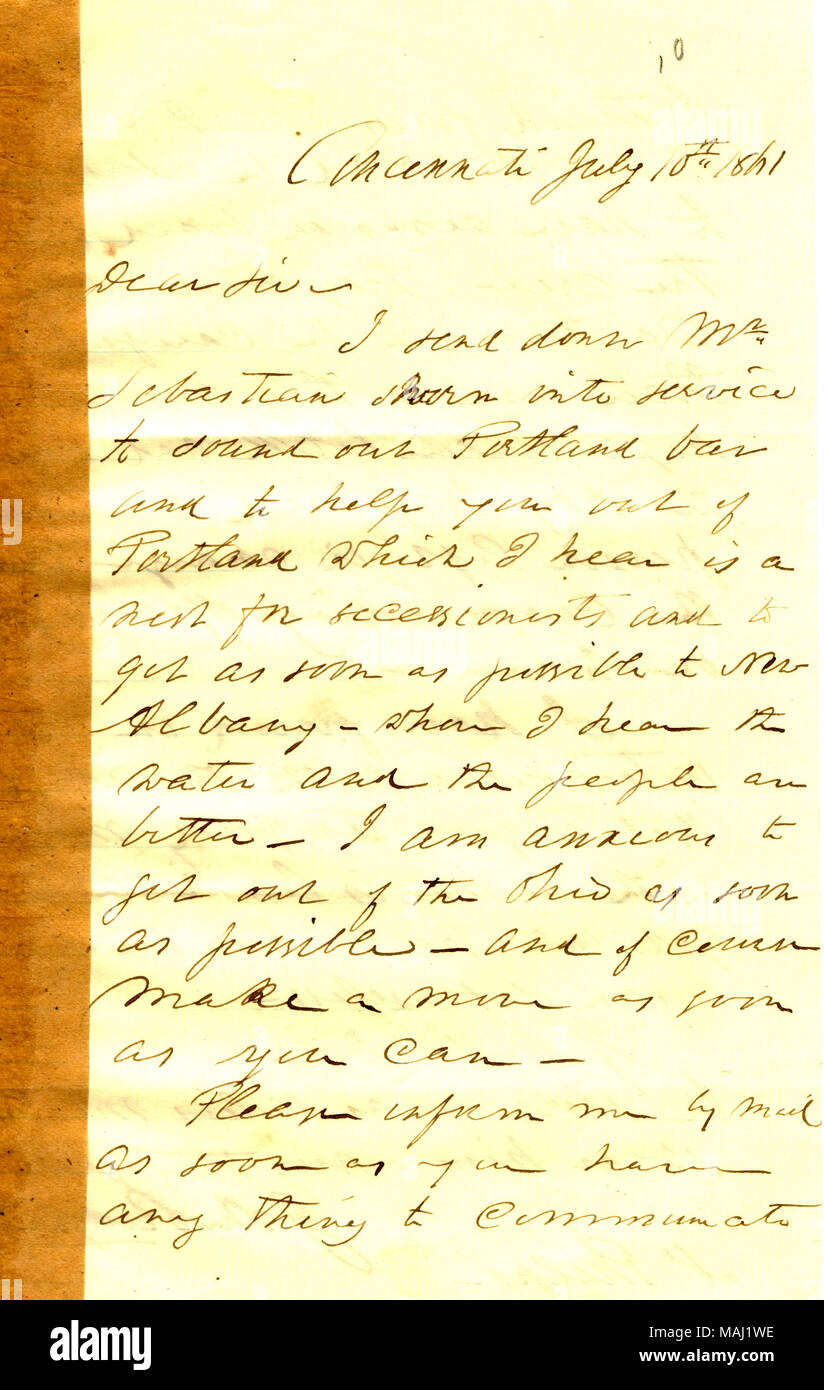 10
Cincennati July 10th 1861
Dear Sir—
I send down Mr.
Sebastian sworn into service
to sound out Portland bar
and to help you out of
Portland which I hear is a
nest for secessionists and to
get as soon as possible to New
Albany – where I hear the
water and the people are
better – I am anxious to
get out of the Ohio as soon
as possible – and of course
make a move as soon
as you can –
Please inform me by mail
as soon as you have
any thing to communicate
alamy
Image ID: MAJ1WE
www.alamy.com